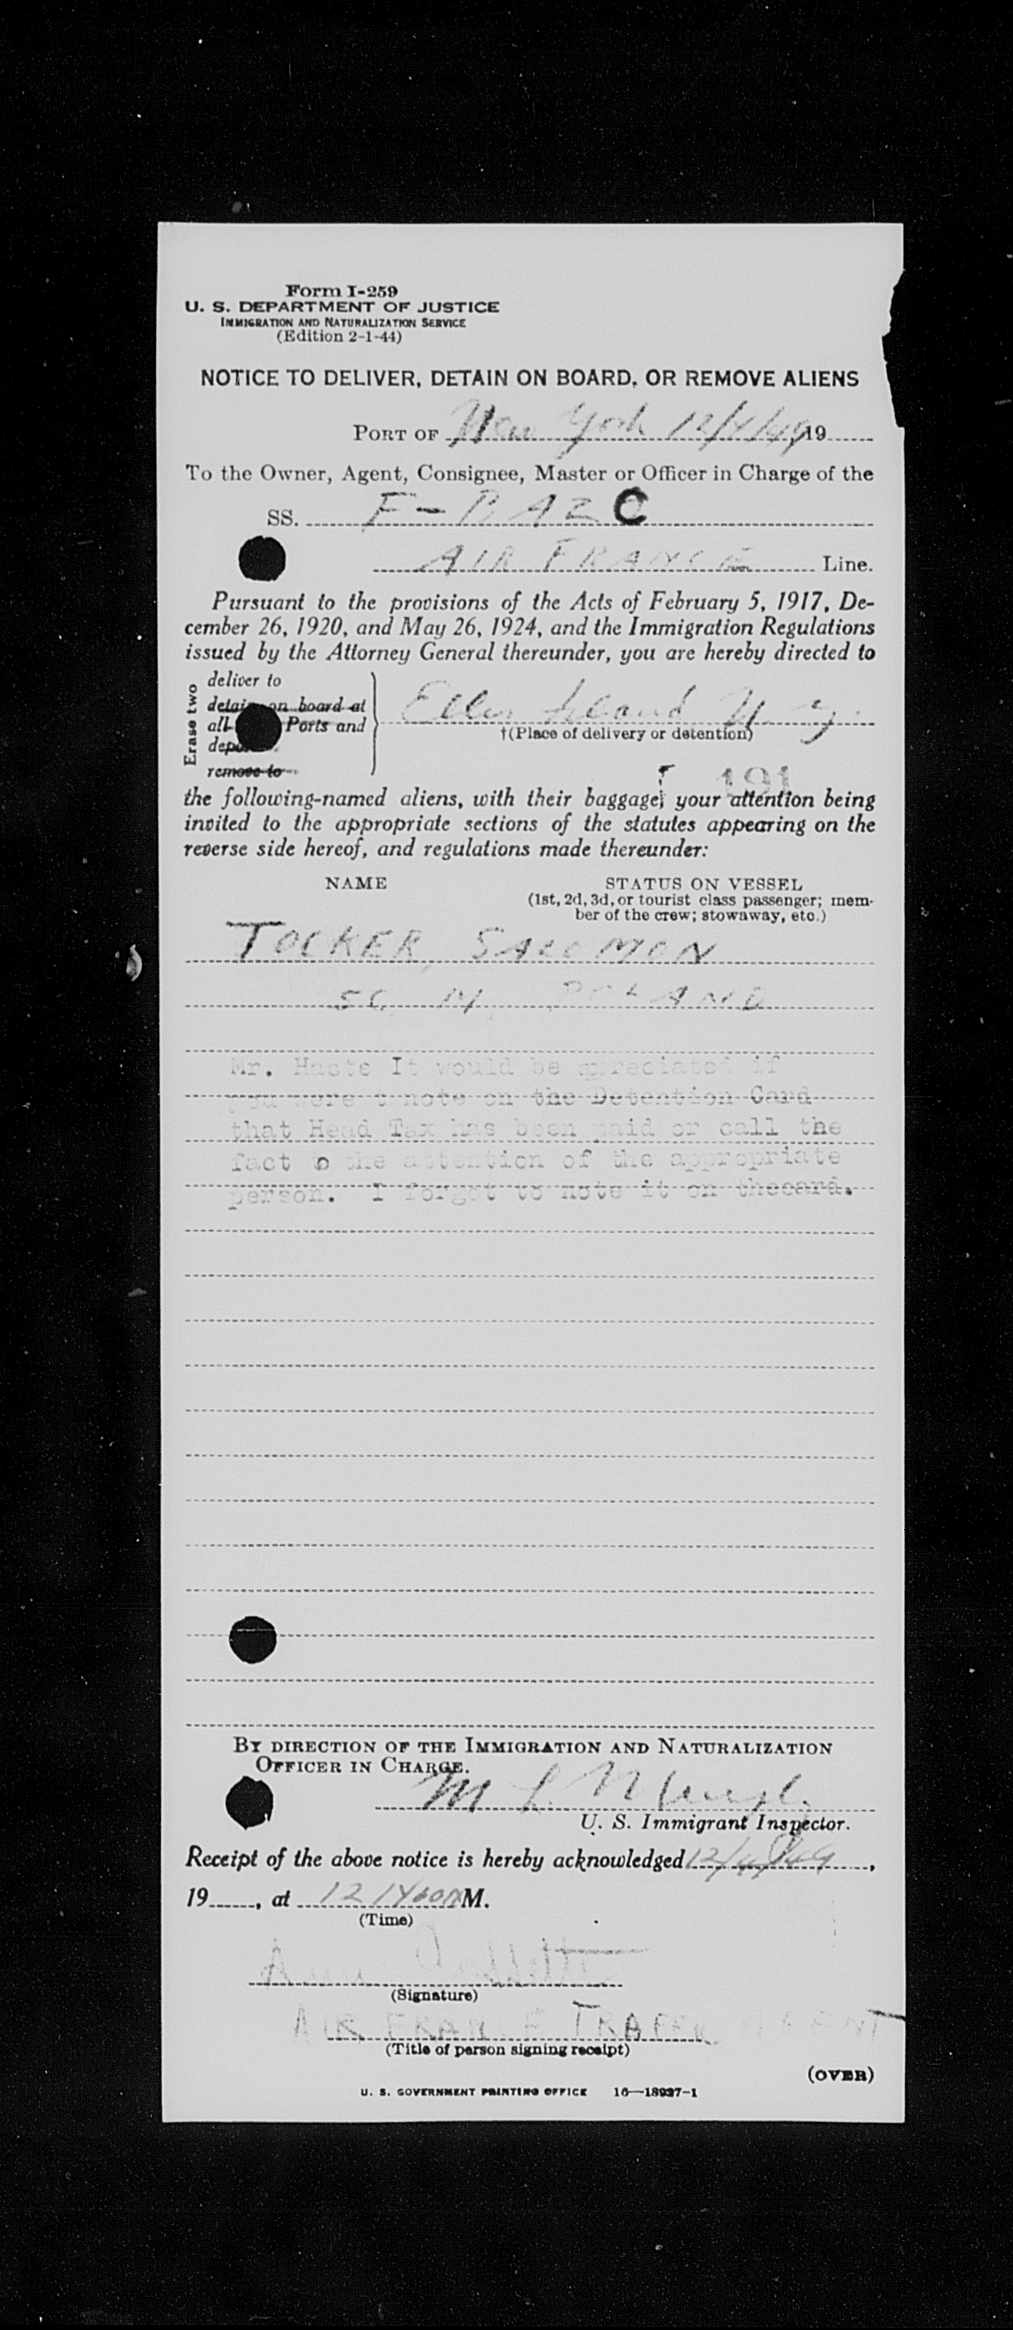 Form I-259
U. S. DEPARTMENT OF JUSTICE
IMMIGRATION AND NATURALIZATION SERVICE
(Edition 2-1-44)
NOTICE TO DELIVER, DETAIN ON BOARD, OR REMOVE ALIENS
PORT OF New York 12/4/49 19
To the Owner, Agent, Consignee, Master or Officer in Charge of the
SS. F-BAZC
AIR FRANCE Line.
Pursuant to the provisions of the Acts of February 5, 1917, De-
cember 26, 1920, and May 26, 1924, and the Immigration Regulations
issued by the Attorney General thereunder, you are hereby directed to
Erase two
deliver to
detain on board at
all Ports and
remove to
Ellis Island N. Y.
†(Place of delivery or detention)
191
the following-named aliens, with their baggage, your attention being
invited to the appropriate sections of the statutes appearing on the
reverse side hereof, and regulations made thereunder:
NAME STATUS ON VESSEL
(1st, 2d, 3d, or tourist class passenger; mem-
ber of the crew; stowaway, etc.)
TOCKER, SALOMON
50 M POLAND
Mr. Haste It would be apreciated if
you were t note on the Detention Card
that Head Tax has been paid or call the
fact o the attention of the appropriate
person. I forgot to note it on thecard.
BY DIRECTION OF THE IMMIGRATION AND NATURALIZATION
OFFICER IN CHARGE.
M L
U. S. Immigrant Inspector.
Receipt of the above notice is hereby acknowledged 12/4/49,
19, at 12 M.
(Time)
(Signature)
AIR FRANCE AGENT
(Title of person signing receipt)
(OVER)
U. S. GOVERNMENT PRINTING OFFICE 16—18937-1